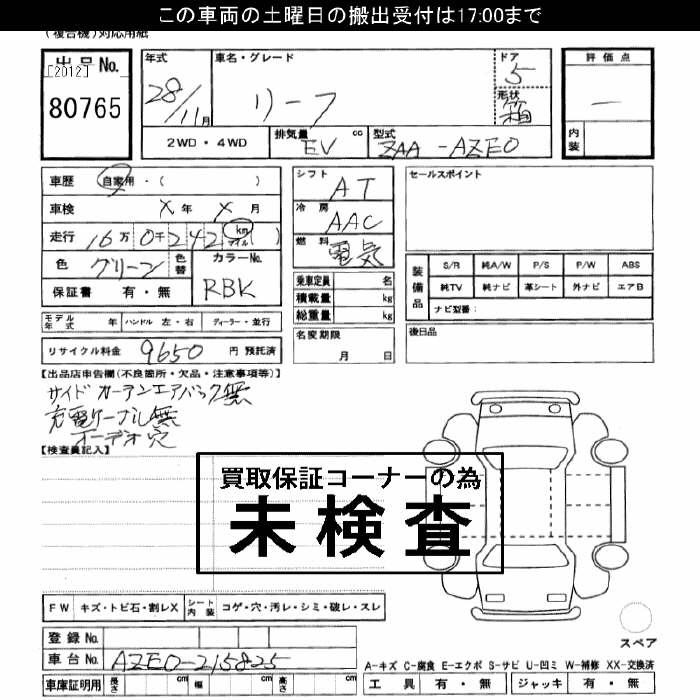 この車両の土曜日の搬出受付は17:00まで
(複合機)対応用紙
出品No.
[2012]
80765
年式
28/11月
車名・グレード
リーフ
ドア
5
形状
箱
評価点
—
内装
2WD・4WD
排気量 cc
EV
型式
ZAA-AZEO
車歴 自家用・( )
車検 X年 X月
走行 16万0千242 km マイル ( )
色 グリーン 色替
カラーNo.
RBK
保証書 有・無
モデル年式 年 ハンドル 左・右 ディーラー・並行
リサイクル料金 9650 円 預託済
シフト
AT
冷房
AAC
燃料
電気
乗車定員 名
積載量 kg
総重量 kg
名変期限
月 日
セールスポイント
装備品
S/R 純A/W P/S P/W ABS
純TV 純ナビ 革シート 外ナビ エアB
ナビ型番:
後日品
【出品店申告欄(不良箇所・欠品・注意事項等)】
サイド カーテンエアバック無
充電ケーブル無
オーデオ穴
【検査員記入】
買取保証コーナーの為
未検査
FW キズ・トビ石・割レX シート内装 コゲ・穴・汚レ・シミ・破レ・スレ
スペア
登録No.
車台No. AZEO-215825
車庫証明用 長さ cm 幅 cm 高さ cm
A-キズ C-腐食 E-エクボ S-サビ U-凹ミ W-補修 XX-交換済
工具 有・無 ジャッキ 有・無